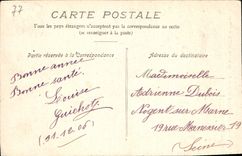 77
CARTE POSTALE
Tous les pays étrangers n'acceptent pas la correspondance au recto
(se renseigner à la poste)
Partie réservée à la Correspondance
Adresse du destinataire
Bonne année
Bonne santé.
Louise
Guichott
(31.12.06)
Mademoiselle
Adrienne Dubois
Nogent sur Marne
19 rue 19
Seine